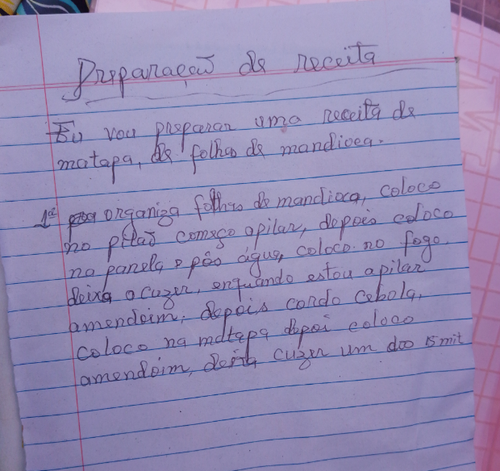 Preparaçaõ de receita
Eu vou preparar uma receita de
matapa, de folhas de mandioca.
1º organiza folhas de mandioca, coloco
no pilaõ começo apilar, depois coloco
na panela e pôs água, coloco no fogo
deixa ocuzer, enquando estou apilar
amendoim, depois cordo cebola,
coloco na matapa depoi coloco
amendoim, deixa cuzer um doo 15 mit